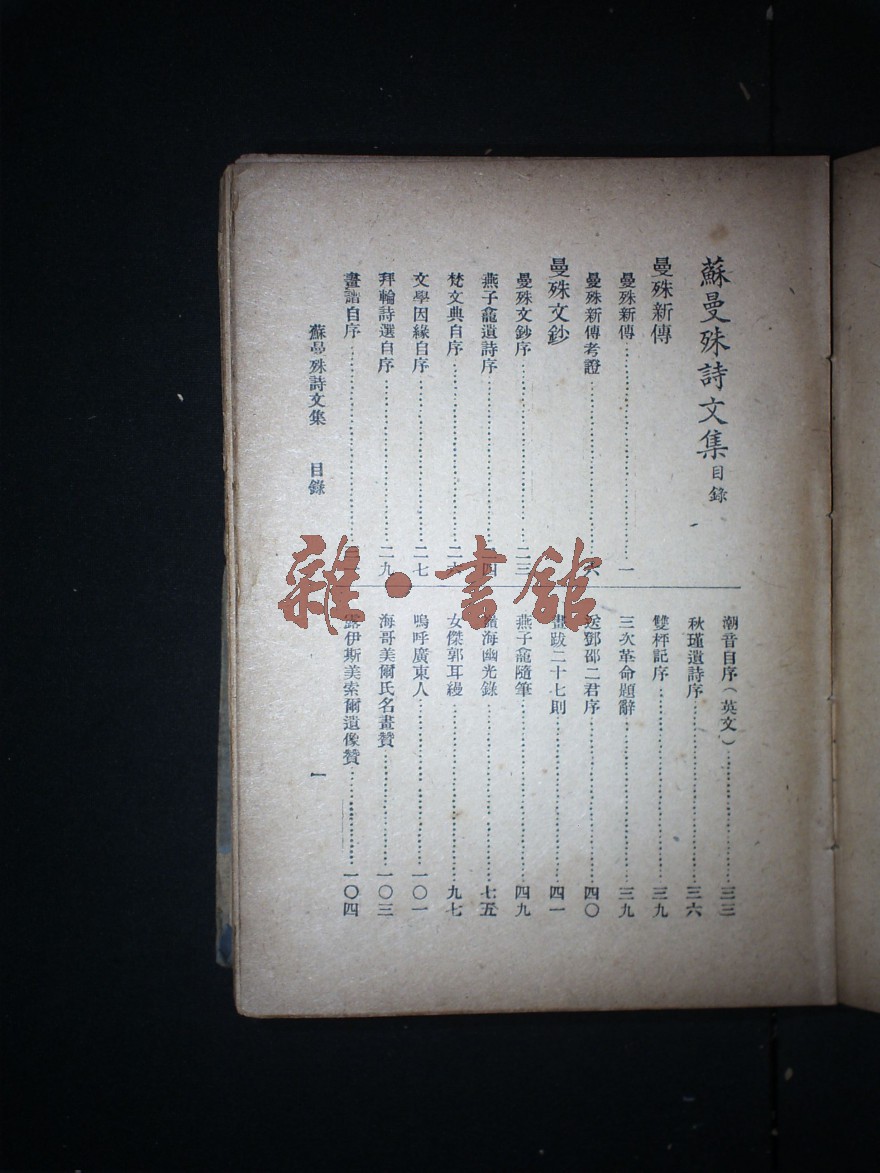 蘇曼殊詩文集目錄
曼殊新傳
曼殊新傳……一
曼殊新傳考證……六
曼殊文鈔
曼殊文鈔序……二三
燕子龕遺詩序……四
梵文典自序……二六
文學因緣自序……二七
拜輪詩選自序……二九
畫譜自序……
潮音自序(英文)……三三
秋瑾遺詩序……三六
雙枰記序……三九
三次革命題辭……三九
送鄧邵二君序……四〇
畫跋二十七則……四一
燕子龕隨筆……四九
嶺海幽光錄……七五
女傑郭耳縵……九七
嗚呼廣東人……一〇一
海哥美爾氏名畫贊……一〇三
露伊斯美索爾遺像贊……一〇四
蘇曼殊詩文集 目錄 一
雜·書館